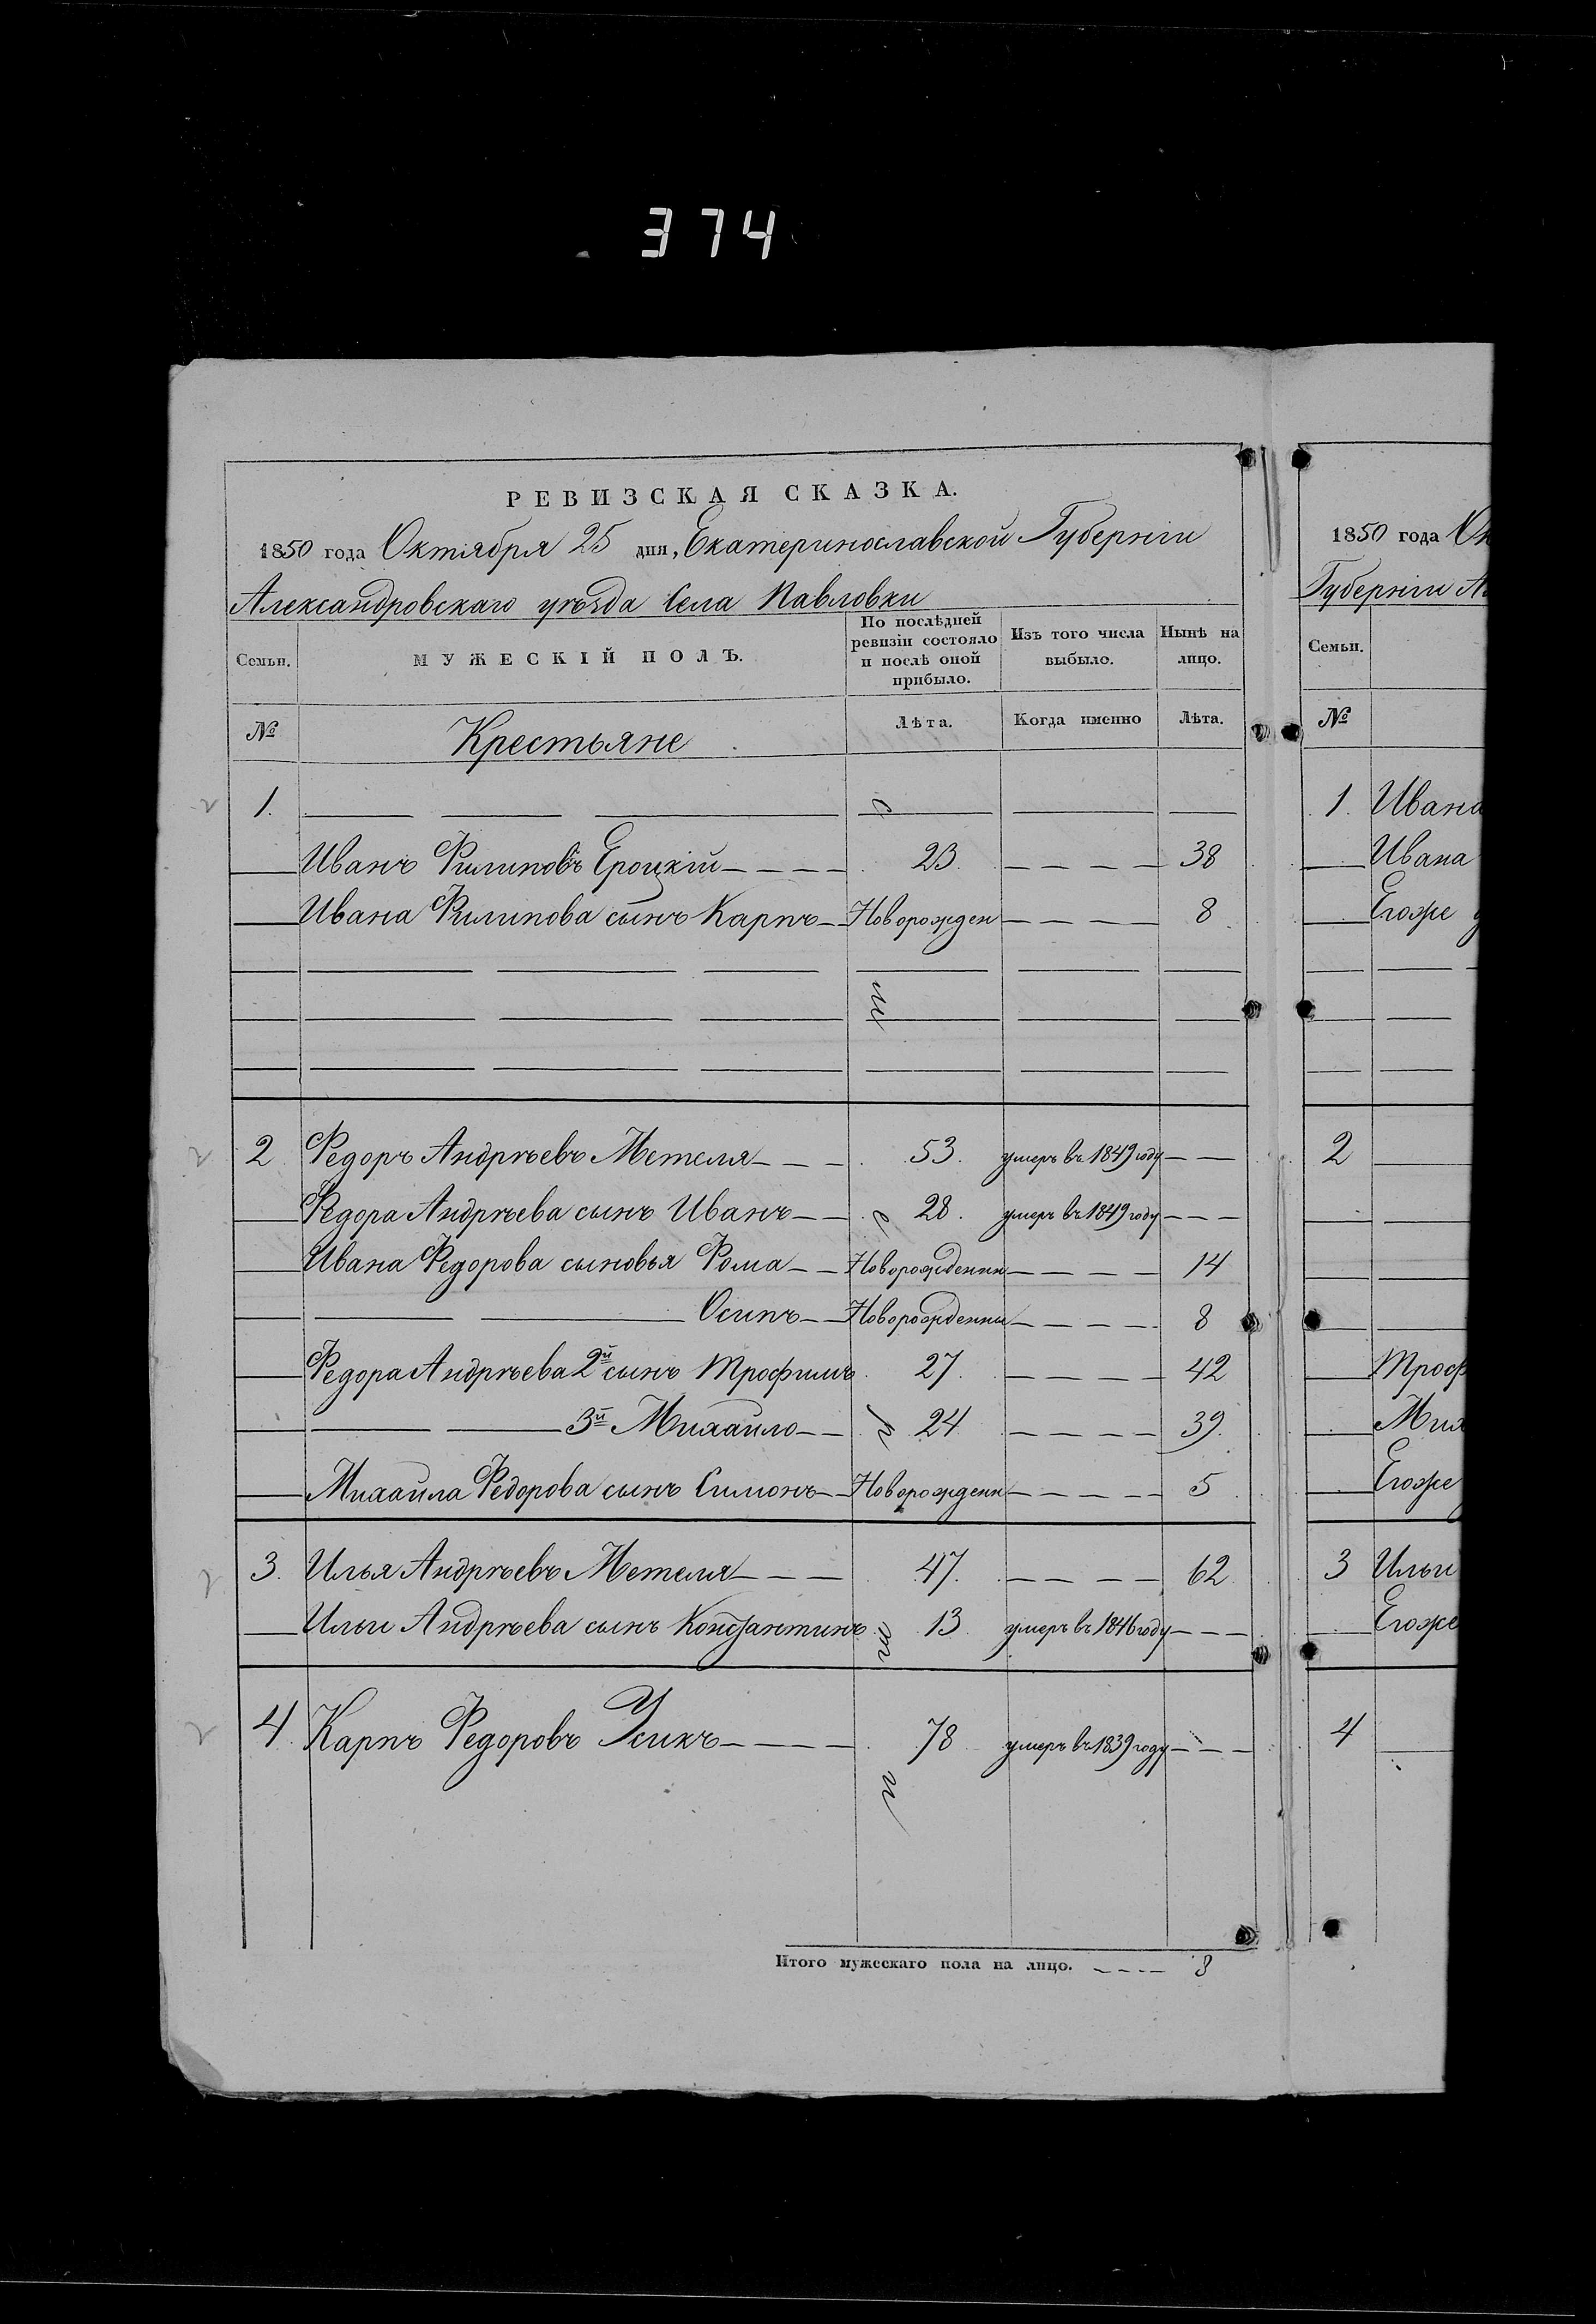 374
РЕВИЗСКАЯ СКАЗКА.
1850 года Октября 25 дня, Екатеринославской Губерніи
Александровскаго уѣзда Села Павловки
Семьи. МУЖЕСКІЙ ПОЛЪ. По послѣдней ревизіи состояло и послѣ оной прибыло. Изъ того числа выбыло. Нынѣ на лицо.
№ Крестьяне Лѣта. Когда именно Лѣта.
1.
Иванъ Филиповъ Ероцкій 23 38
Ивана Филипова сынъ Карпъ Новорожден 8
2 Федоръ Андрѣевъ Метеля 53. умеръ въ 1849 году
Федора Андрѣева сынъ Иванъ 28. умеръ въ 1849 году
Ивана Федорова сыновья Фома Новорожденн 14
Осипъ Новорожденны 8
Федора Андрѣева 2й сынъ Трофимъ 27. 42
3й Михайло 24 39.
Михайла Федорова сынъ Симонъ Новорожденн 5
3. Илья Андрѣевъ Метеля 47. 62
Ильи Андрѣева сынъ Константинъ 13 умеръ въ 1846 году
4. Карпъ Федоровъ Усикъ 78 умеръ въ 1839 году
Итого мужескаго пола на лицо. 8
1850 года Ок
Губерніи А
Семьи.
№
1. Ивана
Ивана
Егоже
2
Троф
Мих
Егоже
3 Ильи
Егоже
4